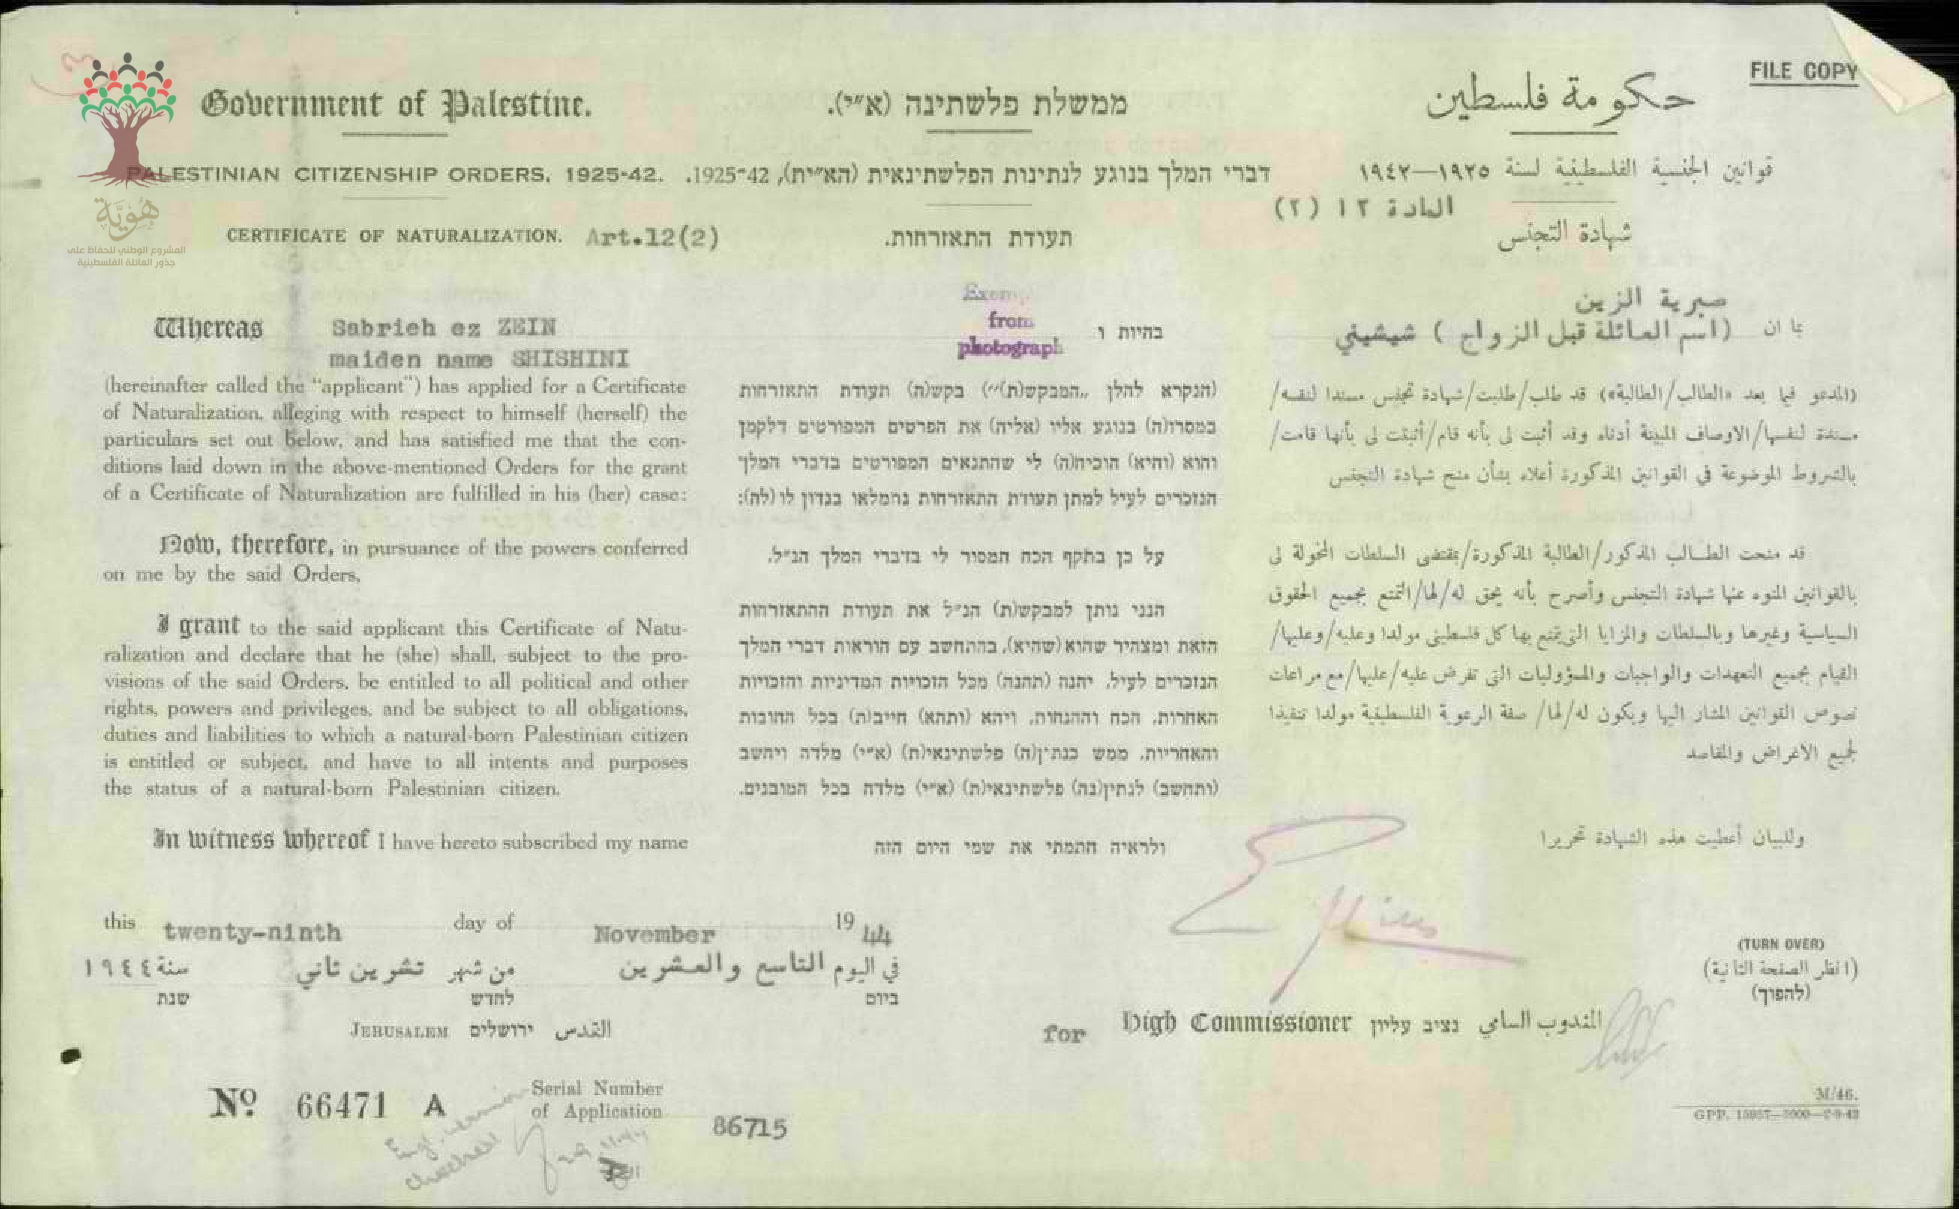 FILE COPY
Government of Palestine.
ממשלת פלשתינה (א״י).
حكومة فلسطين
PALESTINIAN CITIZENSHIP ORDERS, 1925-42.
דברי המלך בנוגע לנתינות הפלשתינאית (הא״ית), 1925-42.
قوانين الجنسية الفلسطينية لسنة ١٩٢٥—١٩٤٢
المادة ١٢ (٢)
CERTIFICATE OF NATURALIZATION. Art.12(2)
תעודת התאזרחות.
شهادة التجنس
هُوِيَّة
المشروع الوطني للحفاظ على
جذور العائلة الفلسطينية
Whereas Sabrieh ez ZEIN
maiden name SHISHINI
(hereinafter called the “applicant”) has applied for a Certificate
of Naturalization, alleging with respect to himself (herself) the
particulars set out below, and has satisfied me that the con-
ditions laid down in the above-mentioned Orders for the grant
of a Certificate of Naturalization are fulfilled in his (her) case:
Now, therefore, in pursuance of the powers conferred
on me by the said Orders,
I grant to the said applicant this Certificate of Natu-
ralization and declare that he (she) shall, subject to the pro-
visions of the said Orders, be entitled to all political and other
rights, powers and privileges, and be subject to all obligations,
duties and liabilities to which a natural-born Palestinian citizen
is entitled or subject, and have to all intents and purposes
the status of a natural-born Palestinian citizen.
In witness whereof I have hereto subscribed my name
Exemp
from
photograph
בהיות ו
(הנקרא להלן „המבקש(ת)״) בקש(ה) תעודת התאזרחות
במסרו(ה) בנוגע אליו (אליה) את הפרטים המפורטים דלקמן
והוא (והיא) הוכיח(ה) לי שהתנאים המפורטים בדברי המלך
הנזכרים לעיל למתן תעודת התאזרחות נתמלאו בנדון לו (לה):
על כן בתקף הכח המסור לי בדברי המלך הנ״ל,
הנני נותן למבקש(ת) הנ״ל את תעודת ההתאזרחות
הזאת ומצהיר שהוא (שהיא), בהתחשב עם הוראות דברי המלך
הנזכרים לעיל, יהנה (תהנה) מכל הזכויות המדיניות והזכויות
האחרות, הכח וההנחות, ויהא (ותהא) חייב(ת) בכל החובות
והאחריות, ממש כנתין(ה) פלשתינאי(ת) (א״י) מלדה ויחשב
(ותחשב) לנתין(נה) פלשתינאי(ת) (א״י) מלדה בכל המובנים.
ולראיה חתמתי את שמי היום הזה
صبرية الزين
بما ان (اسم العائلة قبل الزواج) شيشيني
(المدعو فيما بعد «الطالب/الطالبة») قد طلب/طلبت/شهادة تجنس مسندا لنفسه/
مسندة لنفسها/الاوصاف المبينة أدناه وقد أثبت لى بأنه قام/أثبتت لى بأنها قامت/
بالشروط الموضوعة في القوانين المذكورة أعلاه بشأن منح شهادة التجنس
قد منحت الطالب المذكور/الطالبة المذكورة/بمقتضى السلطات المخولة لى
بالقوانين المنوه عنها شهادة التجنس وأصرح بأنه يحق له/لها/التمتع بجميع الحقوق
السياسية وغيرها وبالسلطات والمزايا التي يتمتع بها كل فلسطيني مولدا وعليه/وعليها/
القيام بجميع التعهدات والواجبات والمسؤوليات التى تفرض عليه/عليها/مع مراعات
نصوص القوانين المشار اليها ويكون له/لها/ صفة الرعوية الفلسطينية مولدا تنفيذا
لجميع الاغراض والمقاصد
وللبيان أعطيت هذه الشهادة تحريرا
this twenty-ninth day of November 1944
في اليوم التاسع والعشرين من شهر تشرين ثاني سنة ١٩٤٤
ביום לחדש שנת
JERUSALEM ירושלים القدس
(TURN OVER)
(انظر الصفحة الثانية)
(להפוך)
for High Commissioner נציב עליון المندوب السامي
Nº 66471 A
Serial Number
of Application 86715
checked
M/46.
GPP. 15957—2000—2-9-43